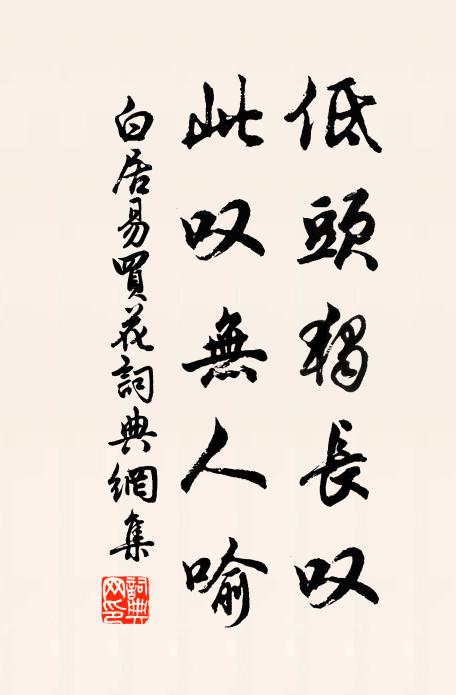 低頭獨長叹
此叹無人喻
白居易買花詞典網集
詞典
网印